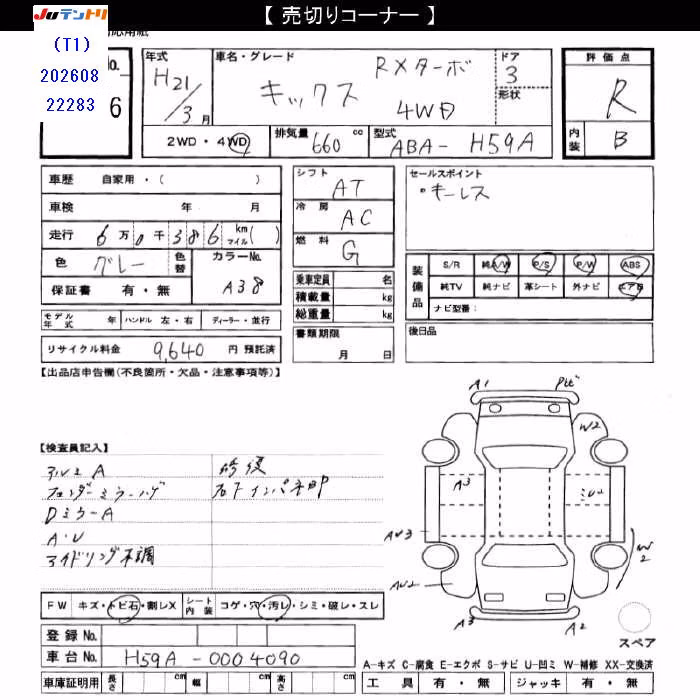 【 売切りコーナー 】
JUテントリ
(T1)
202608
22283
6
年式
H21/3月
車名・グレード
RXターボ
キックス
4WD
ドア
3
形状
評価点
R
内装
B
2WD・4WD
排気量 660 cc
型式 ABA- H59A
車歴 自家用・( )
車検 年 月
走行 6万0千386 km マイル( )
色 グレー
色替
カラーNo. A38
保証書 有・無
モデル年式 年
ハンドル 左・右
ディーラー・並行
リサイクル料金 9,640 円 預託済
シフト AT
冷房 AC
燃料 G
乗車定員 名
積載量 kg
総重量 kg
書類期限
月 日
セールスポイント
・キーレス
装備品
S/R 純A/W P/S P/W ABS
純TV 純ナビ 革シート 外ナビ エアB
ナビ型番:
後日品
【出品店申告欄(不良箇所・欠品・注意事項等)】
【検査員記入】
アルミA
フェンダーミラーハゲ
Dミラー A
A・U
アイドリング不調
修復
右下インパネ部
A1
W2
A3
AU3
AU2
W2
A3
A2
スペア
FW キズ・トビ石・割レX
シート内装 コゲ・穴・汚レ・シミ・破レ・スレ
登録No.
車台No. H59A-0004090
車庫証明用 長さ cm 幅 cm 高さ cm
A-キズ C-腐食 E-エクボ S-サビ U-凹ミ W-補修 XX-交換済
工具 有・無 ジャッキ 有・無